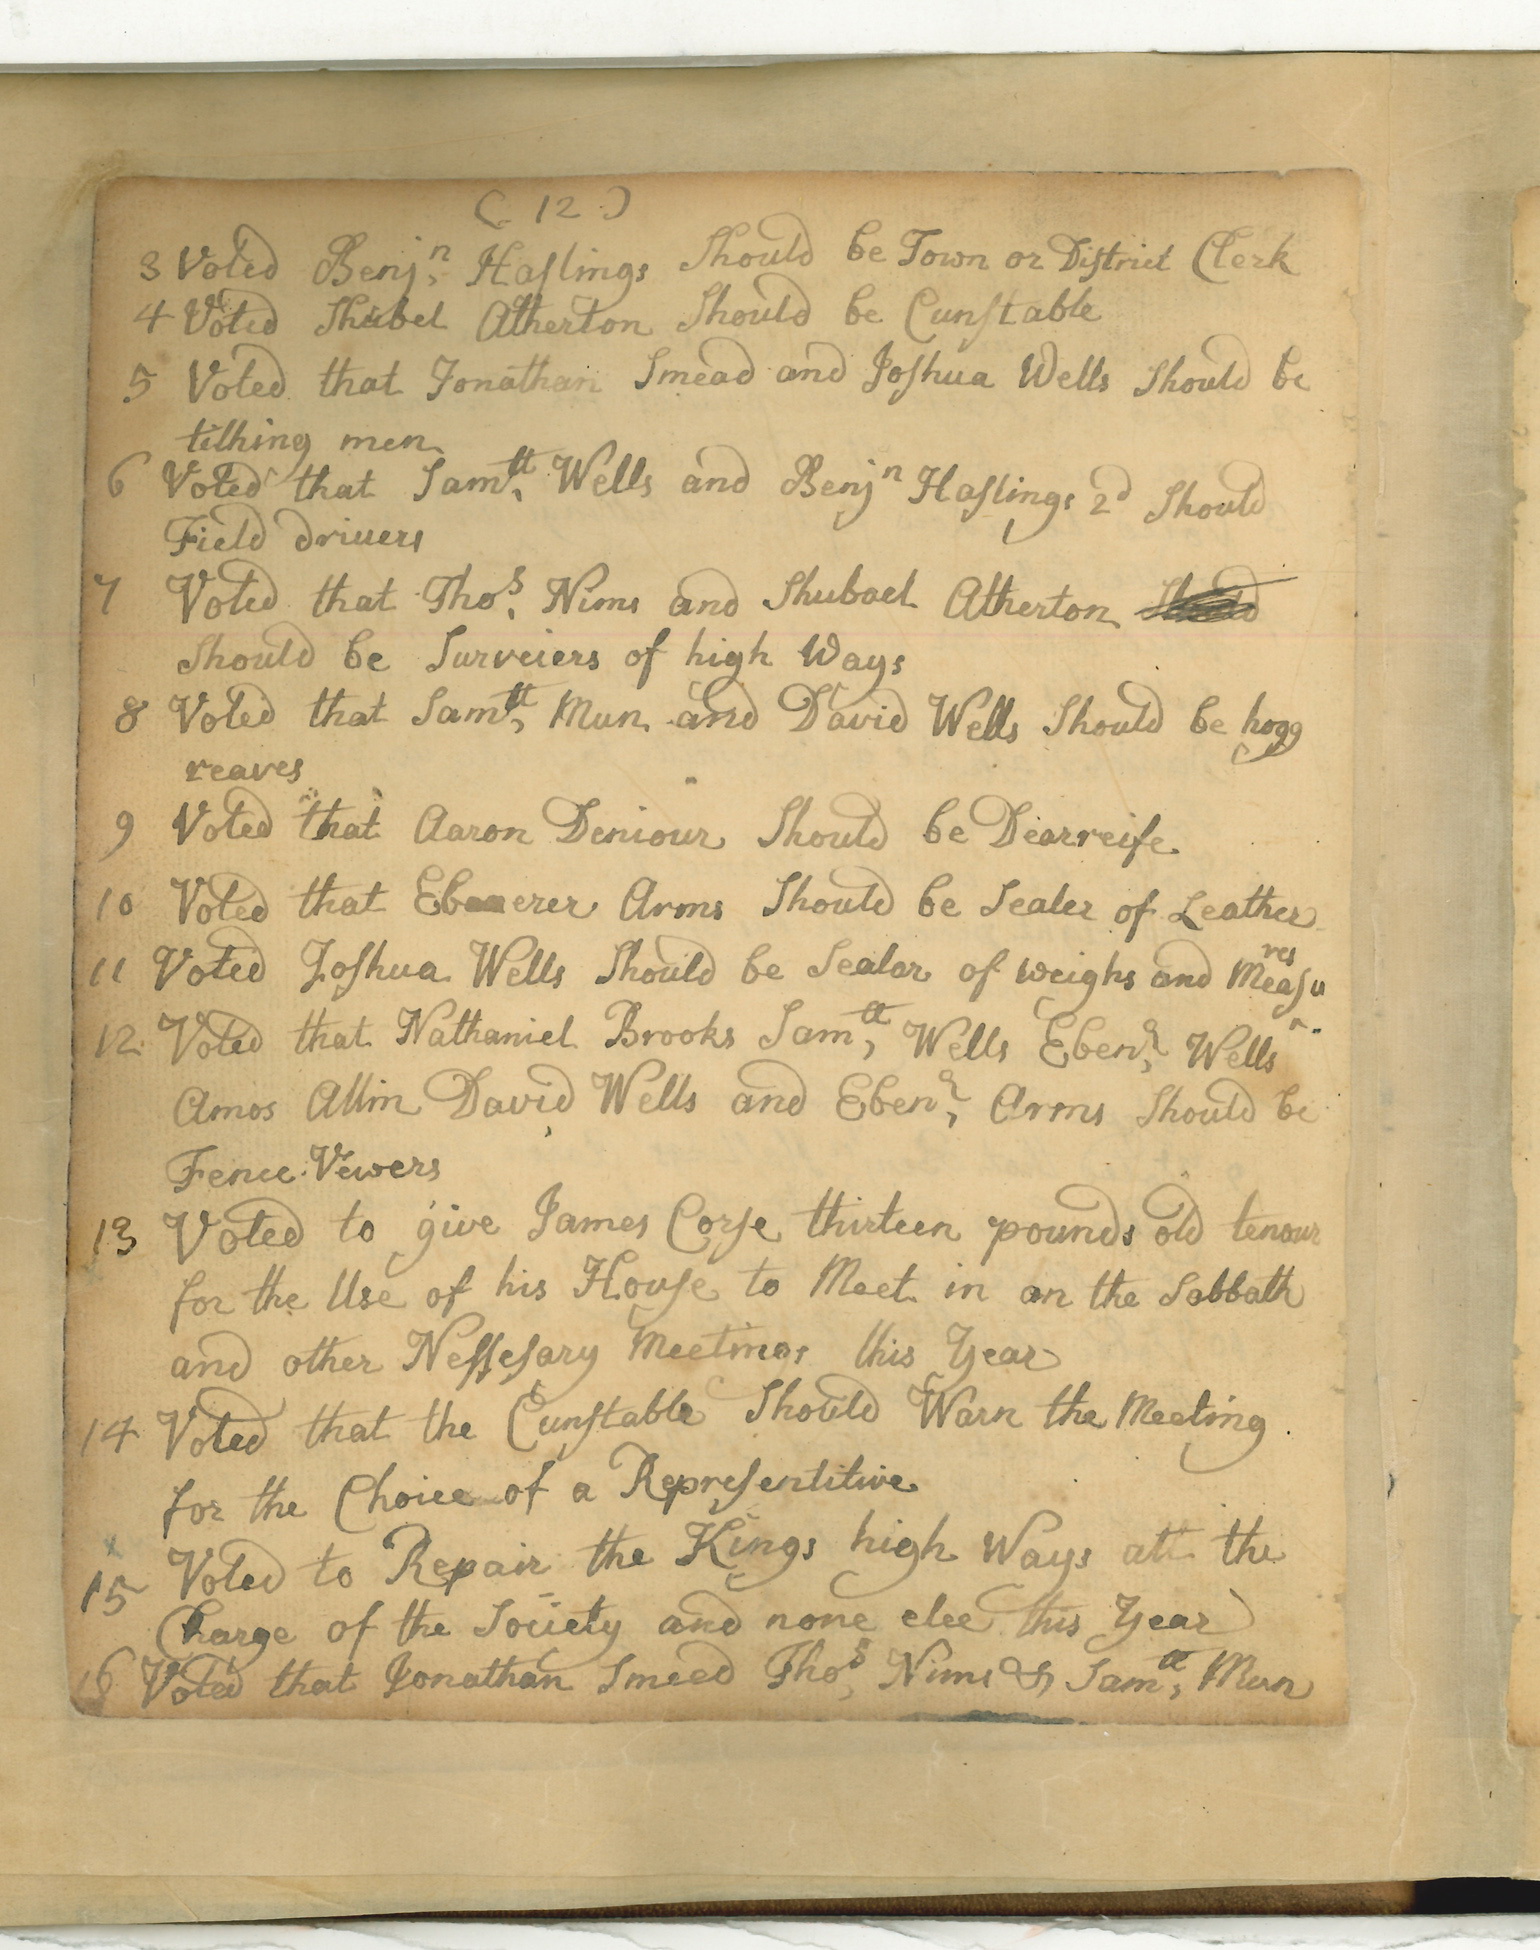 ( 12 )
3 Voted Benjn Hastings Should be Town or District Clerk
4 Voted Shubel Atherton Should be Cunstable
5 Voted that Jonathan Smead and Joshua Wells Should be
tithing men
6 Voted that Samll Wells and Benjn Hastings 2d Should
Field drivers
7 Voted that Thos Nims and Shubael Atherton
Should be Surveiers of high Ways
8 Voted that Samll Mun and David Wells Should be hogg
reaves
9 Voted that Aaron Deniour Should be Dearreife
10 Voted that Ebenezer Arms Should be Sealer of Leather
11 Voted Joshua Wells Should be Sealar of weighs and Measures
12 Voted that Nathaniel Brooks Samll Wells Ebenr Wells
Amos Allin David Wells and Ebenr Arms Should be
Fence Vewers
13 Voted to give James Corse thirteen pounds old tenour
for the Use of his House to Meet in on the Sabbath
and other Nessesary Meetings this Year
14 Voted that the Cunstable Should Warn the Meeting
for the Choice of a Representitive
15 Voted to Repair the Kings high Ways att the
Charge of the Society and none elce this Year
16 Voted that Jonathan Smeed Thos Nims & Samll Mun